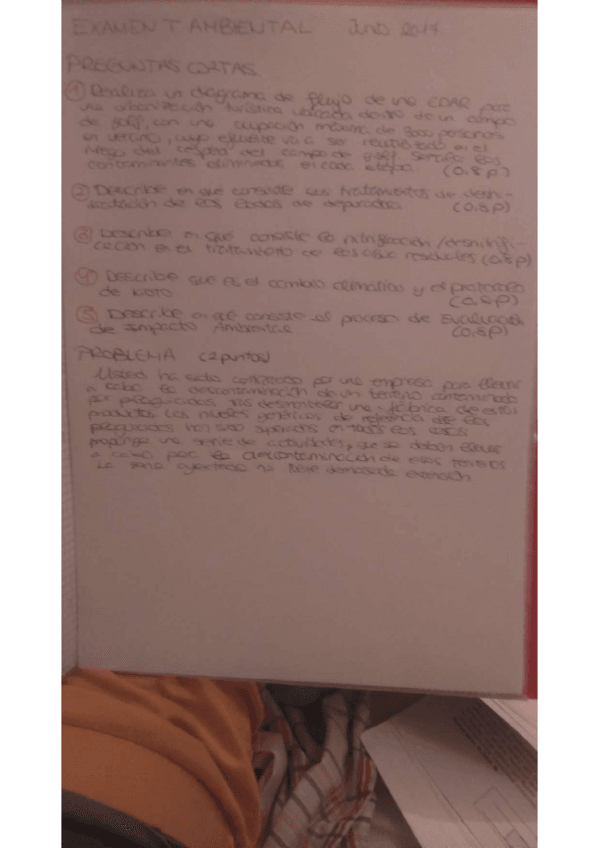 EXAMEN T AMBIENTAL Junio 2017
PREGUNTAS CORTAS
① Realiza un diagrama de flujo de una EDAR para
una urbanización turística ubicada dentro de un campo
de golf, con una ocupación máxima de 3000 personas
en verano, cuyo efluente va a ser reutilizado en el
riego del césped del campo de golf. Señala los
contaminantes eliminados en cada etapa. (0.8 p)
② Describe en qué consiste los tratamientos de deshi-
dratación de los lodos de depuradora. (0.8 p)
③ Describe en qué consiste la nitrificación/desnitrifi-
cación en el tratamiento de las aguas residuales (0,8 p)
④ Describe que es el cambio climático y el protocolo
de Kioto (0.8 p)
⑤ Describe en qué consiste el proceso de Evaluación
de Impacto Ambiental (0.8p)
PROBLEMA (2 puntos)
Usted ha sido contratado por una empresa para llevar
a cabo la descontaminación de un terreno contaminado
por plaguicidas tras desmantelar una fábrica de estos
productos. Los niveles genéricos de referencia de los
plaguicidas han sido superados en todos los casos
proponga una serie de actividades, que se deben llevar
a cabo para la descontaminación de esos terrenos
La zona afectada no tiene demasiada extensión